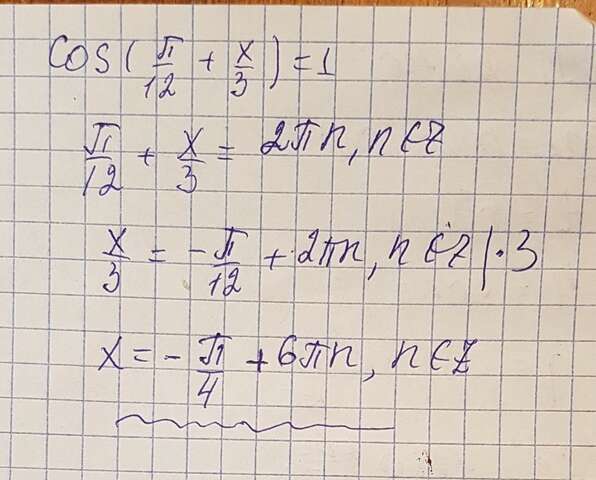 cos(π/12 + x/3) = 1
π/12 + x/3 = 2πn, n∈Z
x/3 = -π/12 + 2πn, n∈Z |·3
x = -π/4 + 6πn, n∈Z